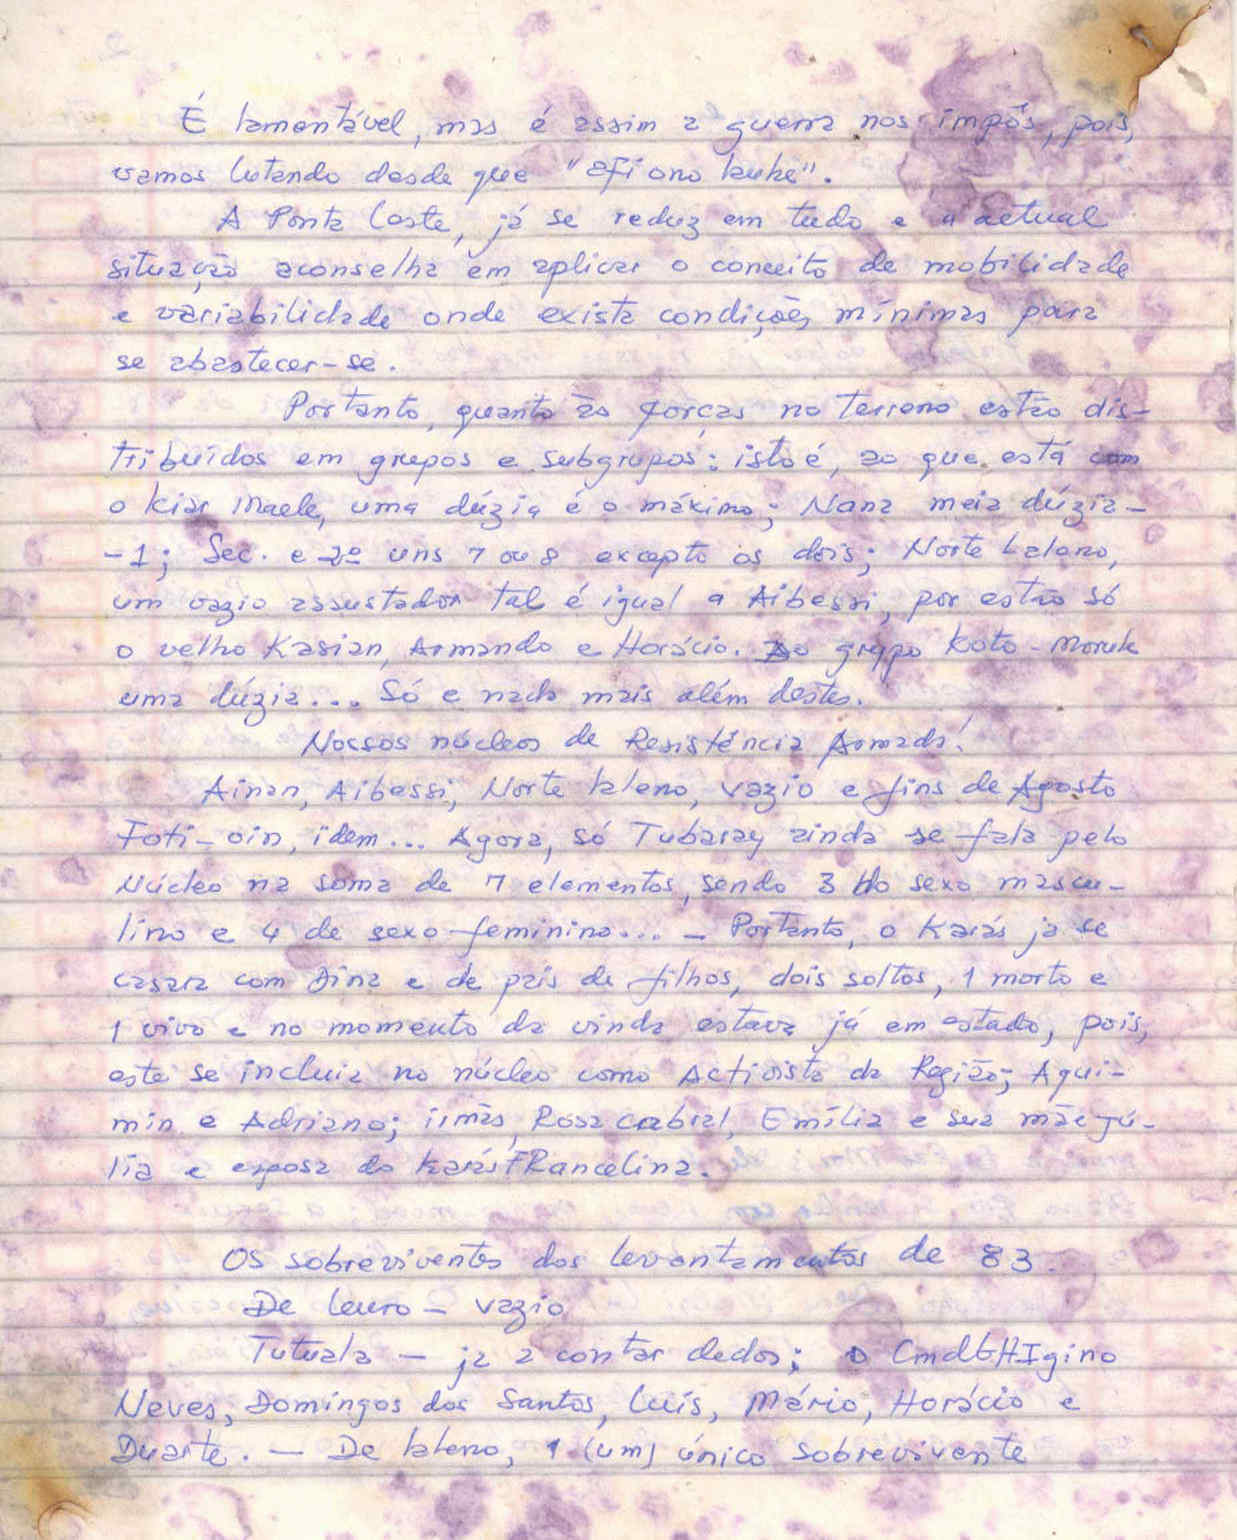 É lamentável, mas é assim a guerra nos impôs, pois,
vamos lutando desde que "efi ono lauhe".
A Ponta Leste, já se reduz em tudo e a actual
situação aconselha em aplicar o conceito de mobilidade
e variabilidade onde exista condições mínimas para
se abastecer-se.
Portanto, quanto às forças no terreno estão dis-
tribuídos em grupos e subgrupos: isto é, ao que está com
o Kiar Maele, uma dúzia é o máximo; Nana meia dúzia-
-1; Sec. e 2º uns 7 ou 8 excepto os dois; Norte Laleno,
um vazio assustador tal é igual a Aibessi, por estão só
o velho Kasian, Armando e Horácio. Ao grupo Koto-Moruk
uma dúzia... Só e nada mais além destes.
Nossos núcleos de Resistência Armada!
Ainan, Aibessi, Norte laleno, vazio e fins de Agosto
Foti-oin, idem... Agora, só Tubaray ainda se fala pelo
Núcleo na soma de 7 elementos, sendo 3 do sexo mascu-
lino e 4 de sexo feminino... - Portanto, o Karás ja se
casara com Aina e de pais de filhos, dois soltos, 1 morto e
1 vivo e no momento da vinda estava já em estado, pois,
este se incluia no núcleo como Activista da Região; Aqui-
min e Adriano; irmãs, Rosa cabral, Emília e sua mãe Jú-
lia e esposa do Karás FRancelina.
OS sobreviventes dos levantamentos de 83.
De leuro - vazio
Tutuala - ja a contar dedos; o Cmdt HIgino
Neves, Domingos dos Santos, Luís, Mário, Horácio e
Duarte. - De laleno, 1 (um) único sobrevivente